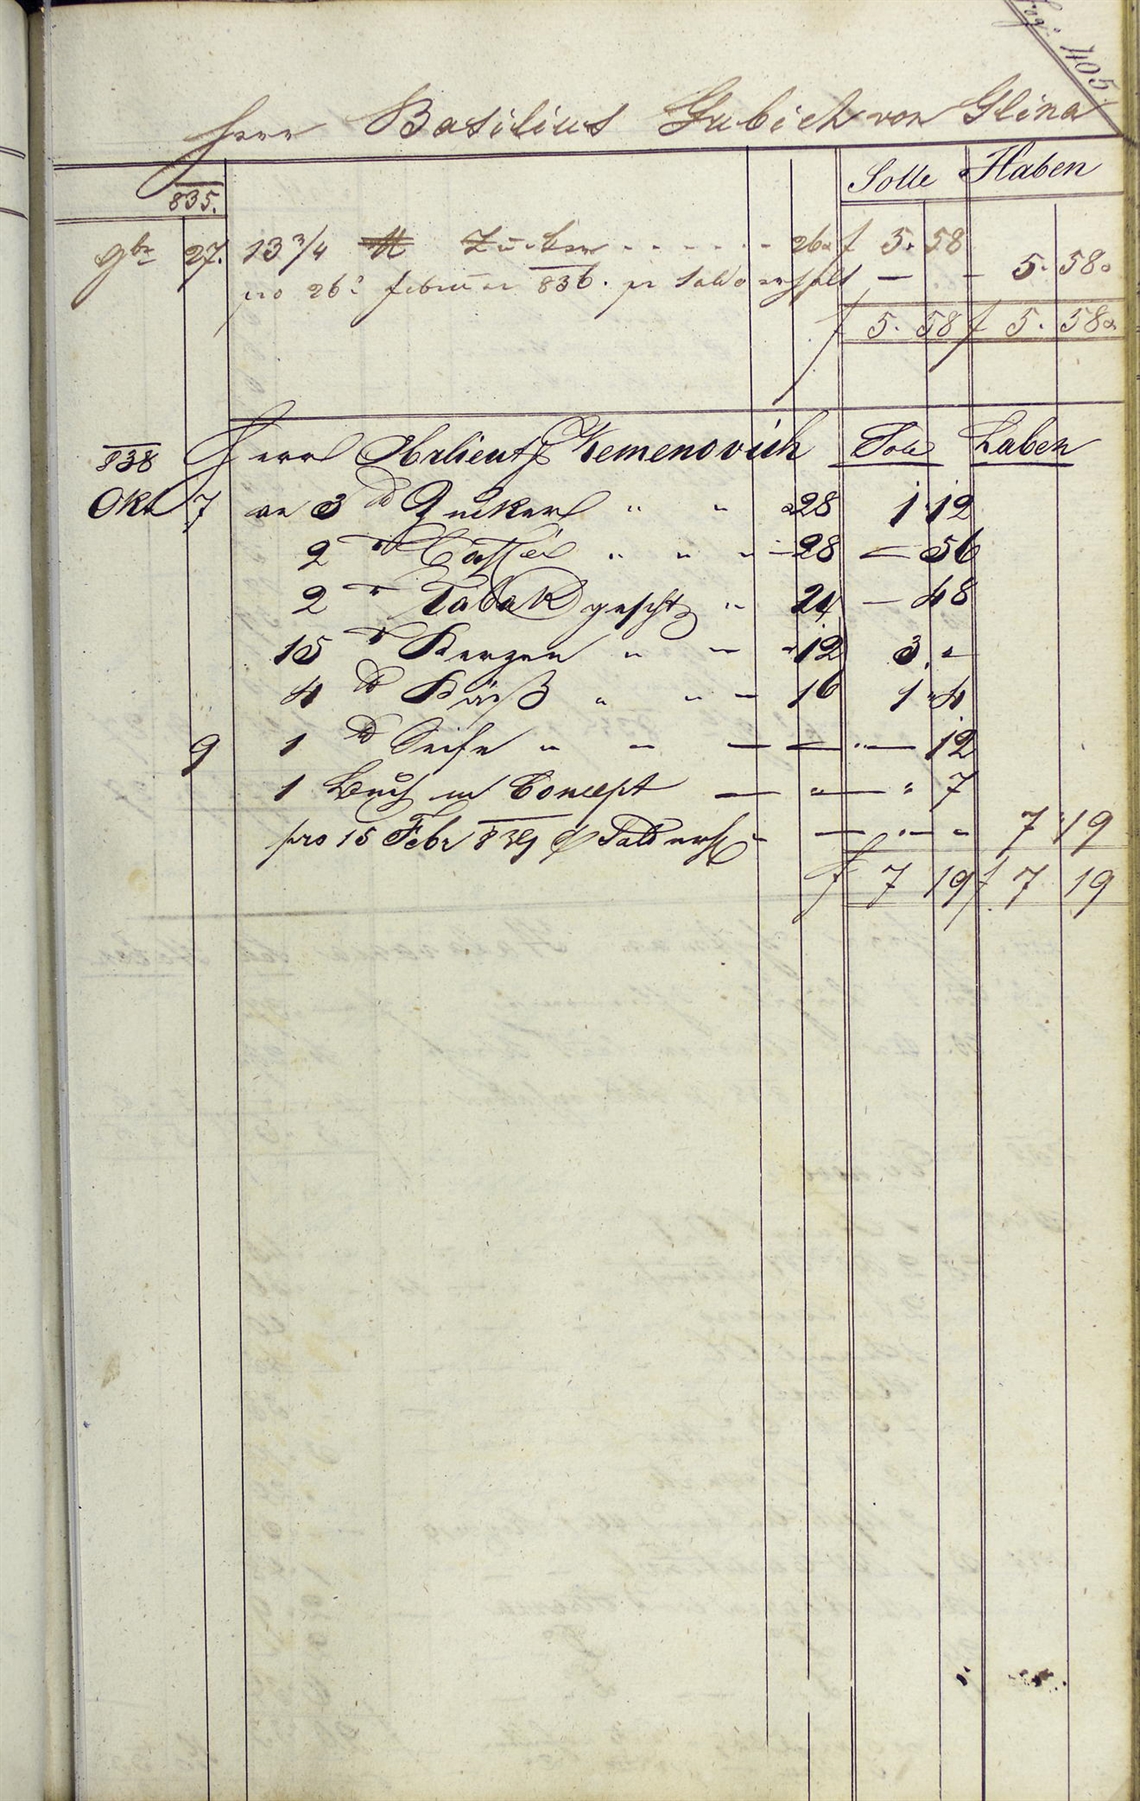 405
Herr Basilius Gubich von Glina
Solle Haben
835.
9br 27. 13 3/4 ℔ Zucker - - - - - - 26 f 5. 58
pro 26 Februar 836. pr Saldo erhalt — - 5. 58
f 5. 58 f 5. 58
838 Herr Obrlieut Zemenovich Solle Haben
Okt 7 an 3 ℔ Zucker " " a 28 1 12
2 " Caffee " " " 28 — 56
2 " Tabak geschn " 24 — 48
15 " Kerzen " " " 12 3. "
4 ℔ Käß " " — 16 1 " 4
9 1 ℔ Seife " " — — " — 12
1 Buch Concept — " — " 7
pro 15 Febr 839 Saldo — " — " 7 " 19
f 7 19 f 7 19